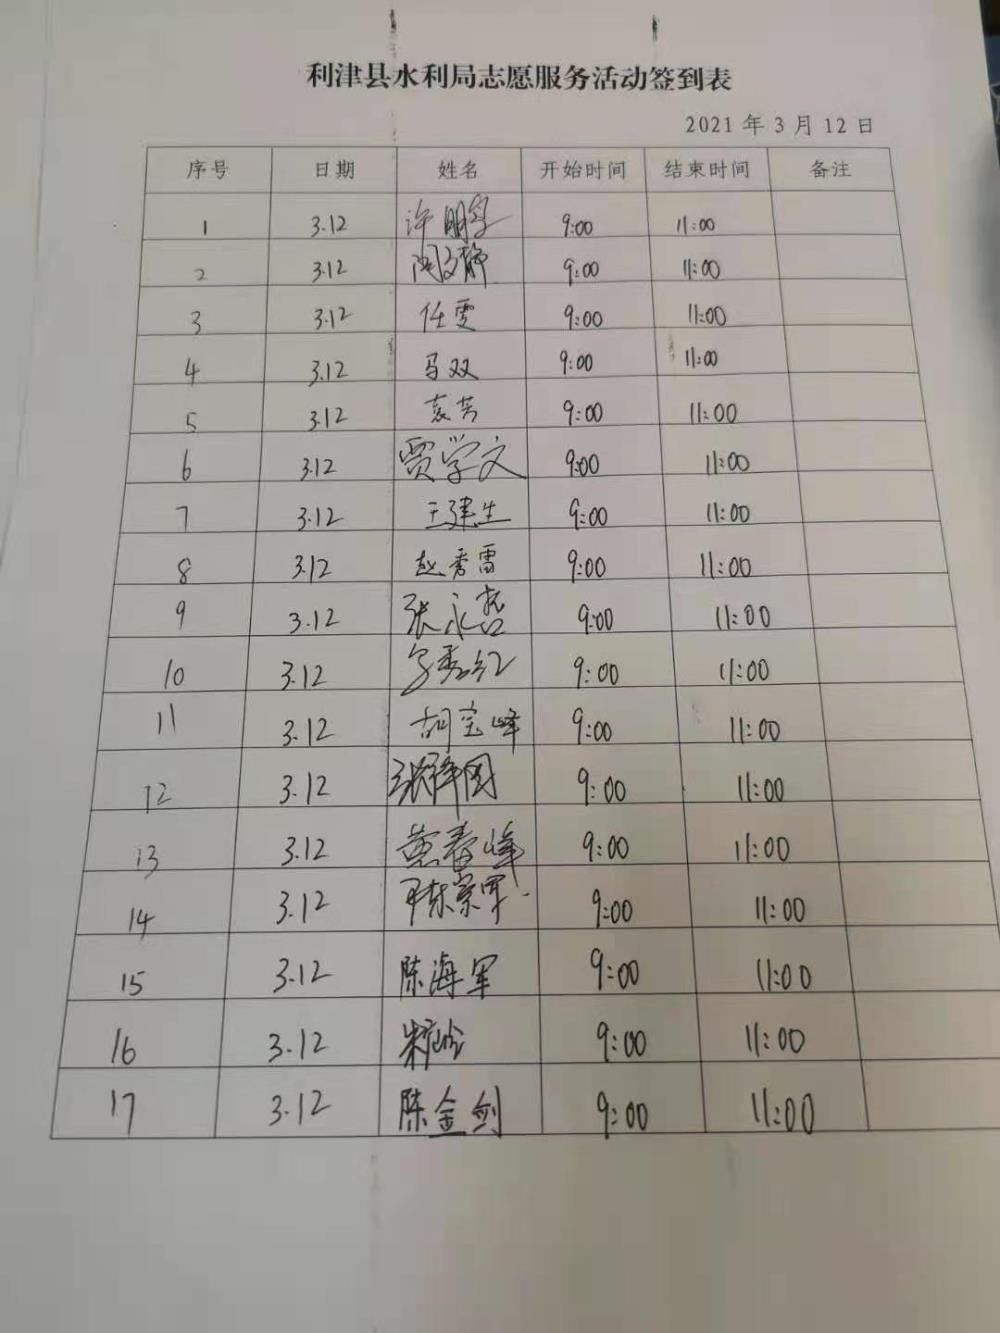 利津县水利局志愿服务活动签到表
2021 年 3 月 12 日
序号 日期 姓名 开始时间 结束时间 备注
1 3.12 许明 9:00 11:00
2 3.12 文静 9:00 11:00
3 3.12 任雯 9:00 11:00
4 3.12 马双 9:00 11:00
5 3.12 袁芳 9:00 11:00
6 3.12 贾学文 9:00 11:00
7 3.12 王建生 9:00 11:00
8 3.12 赵秀雷 9:00 11:00
9 3.12 张永哲 9:00 11:00
10 3.12 秀红 9:00 11:00
11 3.12 胡宝峰 9:00 11:00
12 3.12 张祥国 9:00 11:00
13 3.12 黄春峰 9:00 11:00
14 3.12 陈荣军 9:00 11:00
15 3.12 陈海军 9:00 11:00
16 3.12 9:00 11:00
17 3.12 陈金剑 9:00 11:00